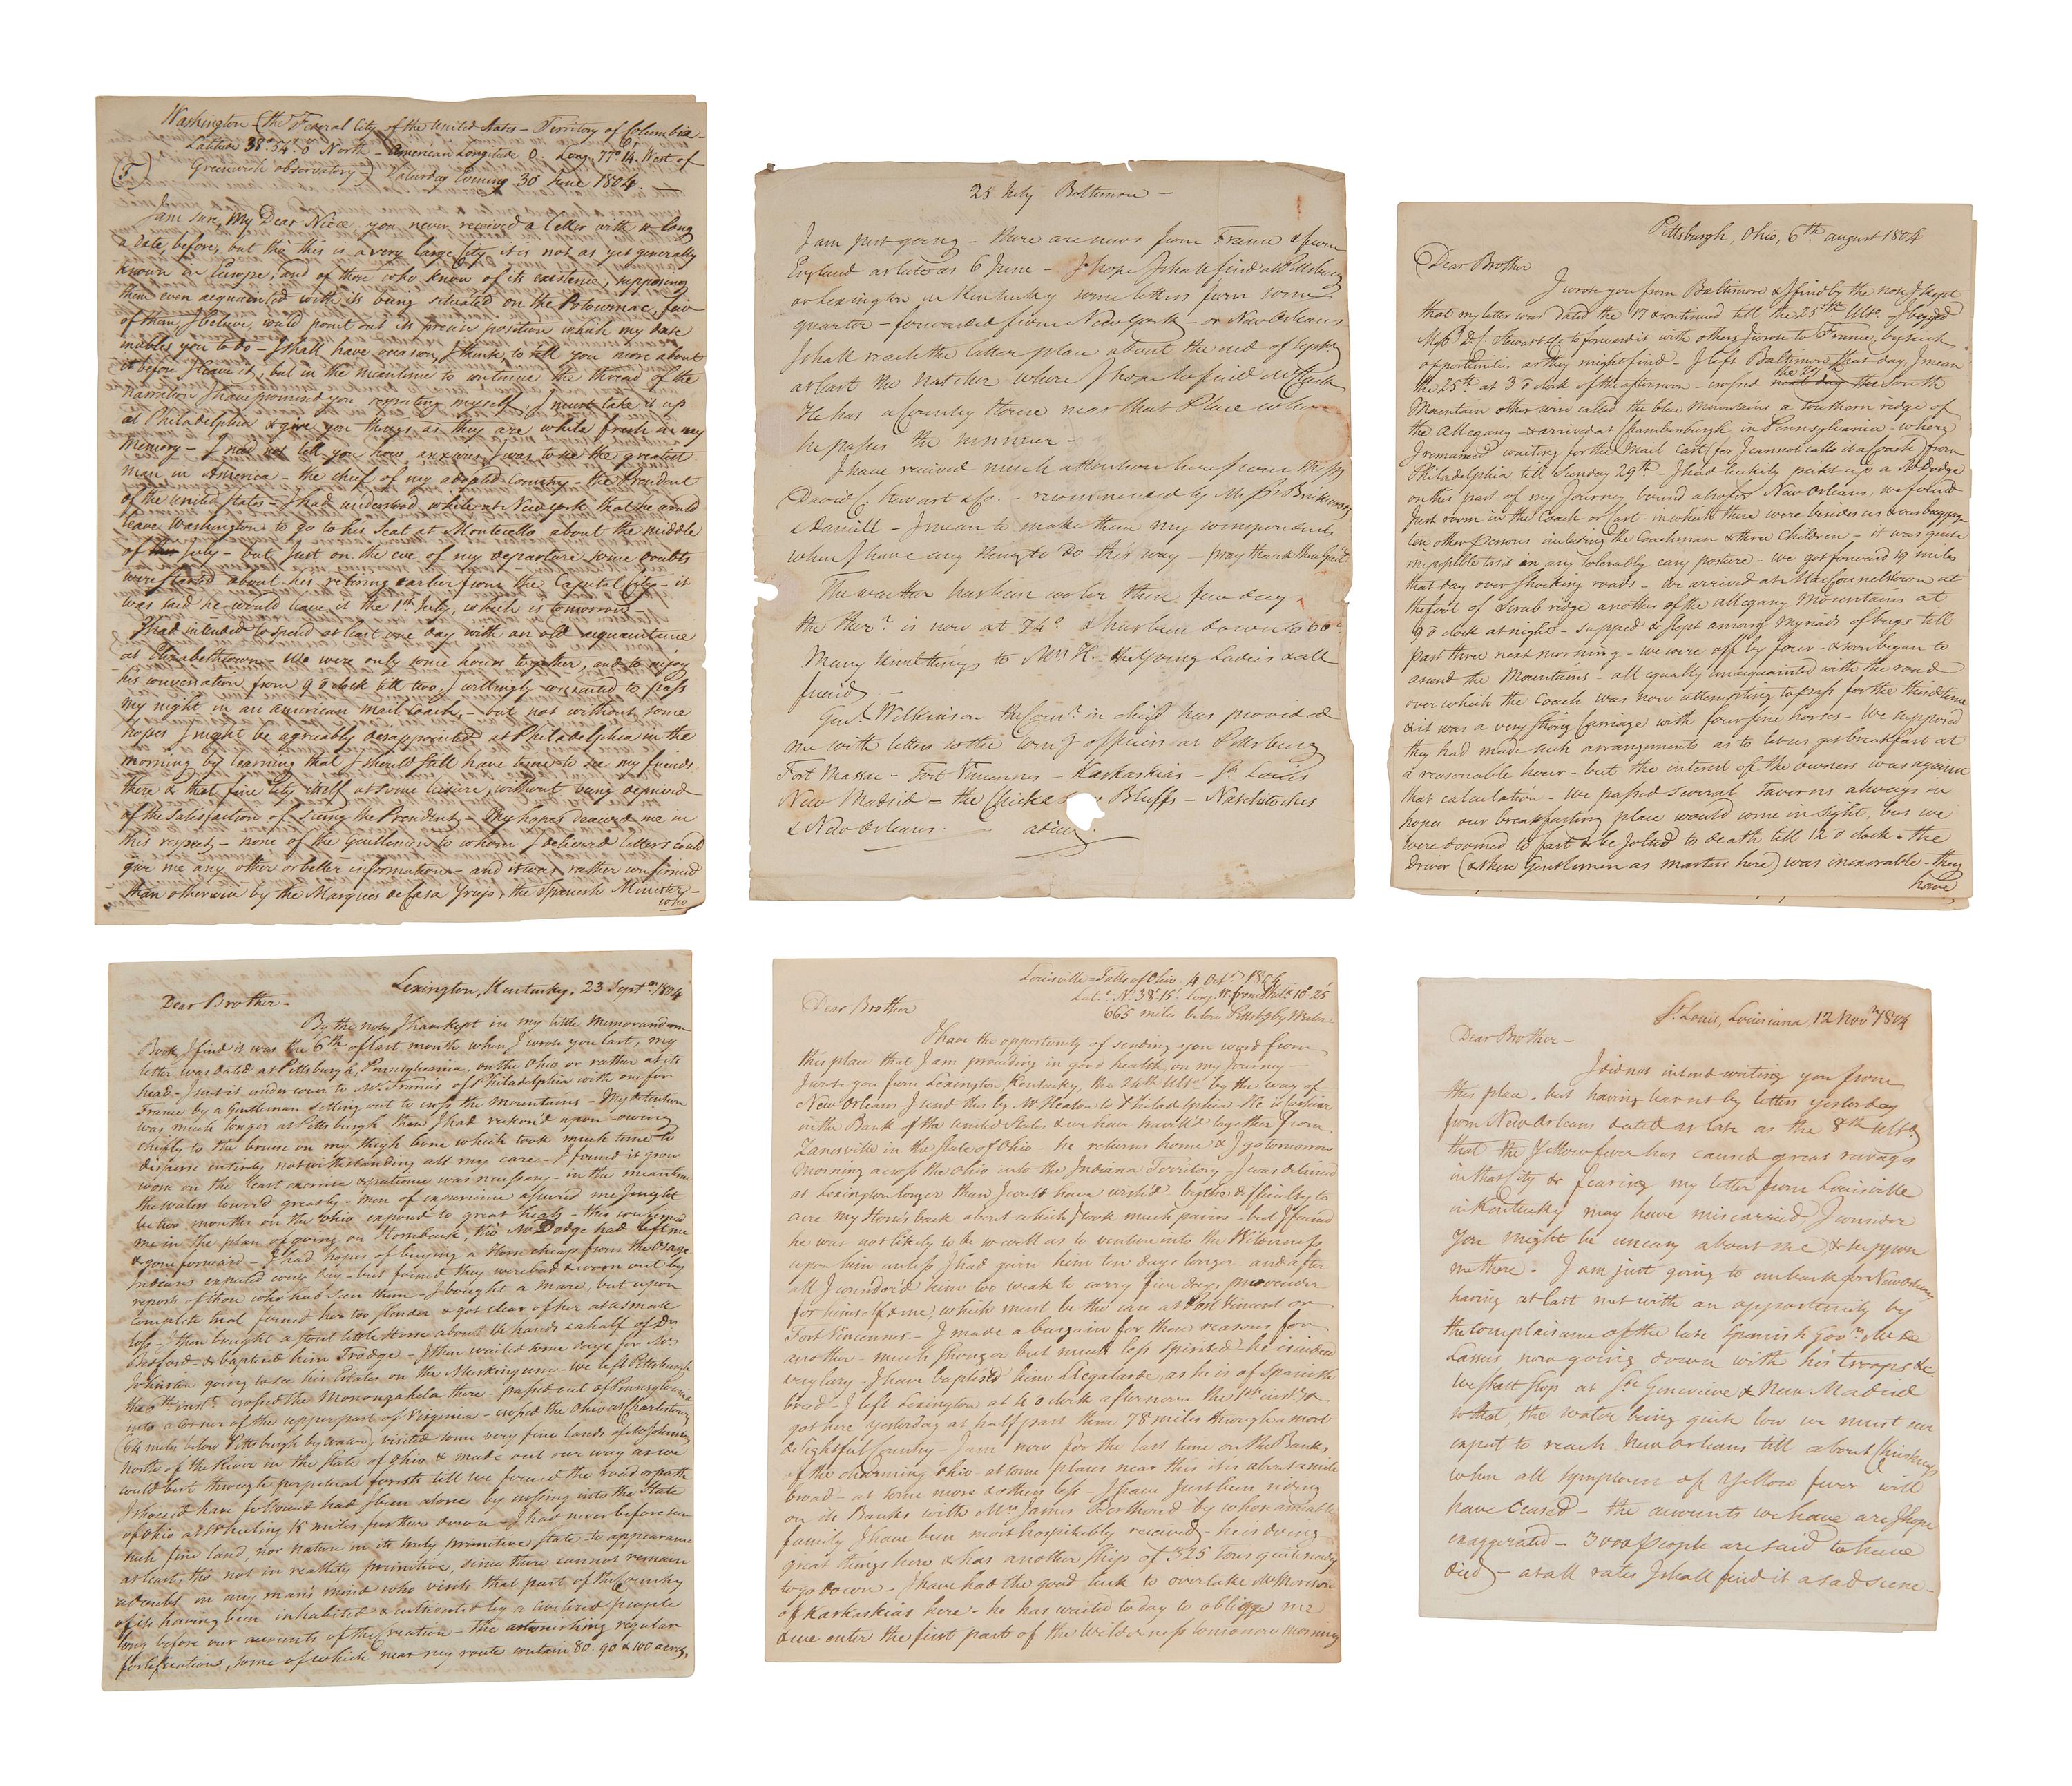 Washington (the Federal City of the United States – Territory of Columbia –
Latitude 38°. 54'. 0 North – American Longitude 0. Long. 77°. 14. West of
Greenwich observatory –) Saturday Evening 30 June 1804. –
I am sure, My Dear Niece, you never received a letter with so long
a date, before, but tho' this is a very large City it is not as yet generally
known in Europe, and of those who know of its existence, supposing
them even acquainted with its being situated on the Potowmac, few
of them, I believe, could point out its precise position which my date
inables you to do – I shall have occasion, I think, to tell you more about
it before I leave it, but in the meantime to continue the thread of the
narration I have promised you respecting myself I must take it up
at Philadelphia & give you things as they are while fresh in my
memory – I need not tell you how anxious I was to see the greatest
man in America – the chief of my adopted Country – the President
of the United States – I had understood while at New York that he would
leave Washington to go to his Seat at Monticello about the middle
of July – but just on the eve of my departure some doubts
were started about his retiring earlier from the Capital City – it
was said he would leave it the 1st July, which is tomorrow –
I had intended to spend at least one day with an old acquaintance
at Elizabethtown – We were only some hours together, and to enjoy
his conversation from 9 o'clock till two, I willingly consented to pass
my night in an american mail Coach – but not without some
hopes I might be agreeably disappointed at Philadelphia in the
morning by learning that I should still have time to see my friends
there & that fine City itself at some leisure, without being deprived
of the satisfaction of seeing the President – My hopes deceived me in
this respect – none of the Gentlemen to whom I delivered letters could
give me any other or better information – and it was rather confirmed
than otherwise by the Marquis de Casa Yrujo, the Spanish Minister –
who
25 July Baltimore –
I am just going – there are news from France & from
England as late as 6 June – I hope I shall find at Pittsburg
or Lexington in Kentucky some letters from some
quarter – forwarded from New York – or New Orleans
I shall reach the latter place about the end of Septr.
at least the Natchez where I hope to find Mr Clark
He has a Country House near that Place where
he passes the summer –
I have received much attention here from Messrs
David C. Stewart & Co. – recommended by Messrs
& Daniell – I mean to make them my correspondents
when I have any thing to do this way – pray thank
The weather has been cooler these few days
the Ther. is now at 74° & has been down to 60°.
Many kind things to Mrs H. the Young Ladies & all
friends –
Genl. Wilkinson the Comr. in chief has provided
me with letters to the Comg officers at Pittsburg
Fort Massac – Fort Vincennes – Kaskaskias – St Louis
New Madrid – the Chickasaw Bluffs – Natchitoches
& New Orleans. – adieu.
Pittsburgh, Ohio, 6th august 1804
Dear Brother
I wrote you from Baltimore & I find by the note I kept
that my letter was dated the 17 & continued till the 25th Ulto. I begged
Messrs D. C. Stewart & Co to forward it with others I wrote to France, by such
opportunities as they might find – I left Baltimore that day, I mean
the 25th at 3 o'clock of the afternoon – crossed next day the 27th the South
Mountain otherwise called the blue Mountains a Southern ridge of
the Allegany – & arrived at Chambersburgh in Pennsylvania – where
I remained waiting for the Mail Cart (for I cannot call it a Coach) from
Philadelphia till Sunday 29th. I had luckily pickt up a Mr Dodge
on this part of my Journey bound also for New Orleans, we found
just room in the Coach or Cart – in which there were besides us & our baggage
ten other Persons including the Coachman & three Children – it was quite
impossible to sit in any tolerably easy posture – we got forward 19 miles
that day over shocking roads – we arrived at MacConnelstown at
the foot of Scrub ridge another of the allegany Mountains at
9 o'clock at night – supped & slept among myriads of bugs till
past three next morning – we were off by four – & soon began to
ascend the Mountains – all equally unacquainted with the road
over which the Coach was now attempting to pass for the third time
& it was a very strong Carriage with four fine horses – We supposed
they had made such arrangements as to let us get breakfast at
a reasonable hour – but the interest of the owners was against
that calculation – We passed several Taverns always in
hopes our breakfasting place would come in sight, but we
were doomed to fast & be jolted to death till 12 o'clock – the
Driver (& these Gentlemen as masters here) was inexorable – they
have
Lexington, Kentucky, 23 Septem 1804
Dear Brother –
By the notes I have kept in my little Memorandum
Book, I find it was the 6th of last month when I wrote you last, my
letter was dated at Pittsburgh, Pennsylvania, on the Ohio or rather at its
head – I sent it under cover to Mr Francis of Philadelphia with one for
France by a Gentleman setting out to cross the mountains – My detention
was much longer at Pittsburgh than I had reckon'd upon – owing
chiefly to the bruise on my thigh bone which took much time to
disperse entirely notwithstanding all my care – I found it grow
worse on the least exercise & patience was necessary – in the meantime
the waters lower'd greatly – Men of experience assured me I might
be two months on the Ohio exposed to great heats – this confirmed
me in the plan of going on Horseback, tho' Mr Dodge had left me
& gone forward – I had hopes of buying a Horse cheap from the Osage
Indians expected every day – but found they were bad & worn out by
reports of those who had seen them – I bought a mare, but upon
complete trial found her too slender & got clear of her at a small
loss – I then bought a stout little Horse about 14 hands & a half of Dr
Bedford & baptised him Trudge – I then waited some days for Mr
Johnston going to see his Estates on the Muskingum – we left Pittsburgh
the 6th inst. crossed the Monongahela there – passed out of Pennsylvania
into a corner of the upper part of Virginia – crossed the Ohio at Charlestown
(64 miles below Pittsburgh by water) visited some very fine lands of Mr Johnston
North of the River in the State of Ohio & made out our way as we
could best through perpetual forests till we found the road or path
I should have followed had I been alone by crossing into the State
of Ohio at Wheeling 15 miles further down – I had never before seen
such fine land, nor nature in its truly primitive state – to appearance
at least, tho' not in reallity primitive, since there cannot remain
a doubt in any man's mind who visits that part of the Country
of its having been inhabited & cultivated by a civilized people
long before our accounts of the creation – the astonishing regular
fortifications, some of which near my route contain 80. 90 & 100 acres,
Louisville – Falls of Ohio 4 Octr 1804
Lat. No. 38°. 15'. Long. W. from Phila. 10°. 25'
665 miles below Pittsbg by Water.
Dear Brother
I have the opportunity of sending you word from
this place that I am proceeding in good health, on my Journey –
I wrote you from Lexington Kentucky, the 24th Ulto. by the way of
New Orleans – I send this by Mr Heaton to Philadelphia – He is
in the Bank of the United States & we have travell'd together from
Zanesville in the State of Ohio – he returns home & I go tomorrow
morning across the Ohio into the Indiana Territory – I was detained
at Lexington longer than I could have wish'd by the difficulty to
cure my Horse's back about which I took much pains – but I found
he was not likely to be so well as to venture into the Wilderness
upon him unless I had given him ten days longer – and after
all I consider'd him too weak to carry five days provender
for himself & me, which must be the case at Post Vincent or
Fort Vincennes – I made a bargain for these reasons for
another – much stronger but much less spirited – he is indeed
very lazy. I have baptised him Llegatarde, as he is of Spanish
breed – I left Lexington at 4 o'clock afternoon the 1st inst &
got here yesterday at half past three 78 miles through a most
delightful Country – I am now for the last time on the Banks
of the charming Ohio – at some places near this it is about a mile
broad – at some more & others less – I have just been riding
on its Banks with Mr James Berthoud by whose amiable
family I have been most hospitably received – he is doing
great things here & has another Ship of 325 Tons quite ready
to go down – I have had the good luck to overtake Mr Morrison
of Kaskaskias here – he has waited today to oblige me
& we enter the first part of the wilderness tomorrow morning
St. Louis, Louisiana 12 Novr. 1804
Dear Brother –
I did not intend writing you from
this place – but having learnt by letters yesterday
from New Orleans dated as late as the 8th Ulto.
that the Yellow fever has caused great ravages
in that City & fearing my letter from Louisville
in Kentucky may have miscarried I consider
you might be uneasy about me & suppose
me there. I am just going to embark for New Orleans
having at last met with an opportunity by
the complaisance of the late Spanish Govr. Mr de
Lassus now going down with his troops &c.
We shall stop at Ste Genevieve & New Madrid
so that, the water being quite low we must not
expect to reach New Orleans till about Christmas
when all symptoms of Yellow fever will
have ceased – the accounts we have are I hope
exaggerated – 3000 people are said to have
died – at all rates I shall find it a sad scene –